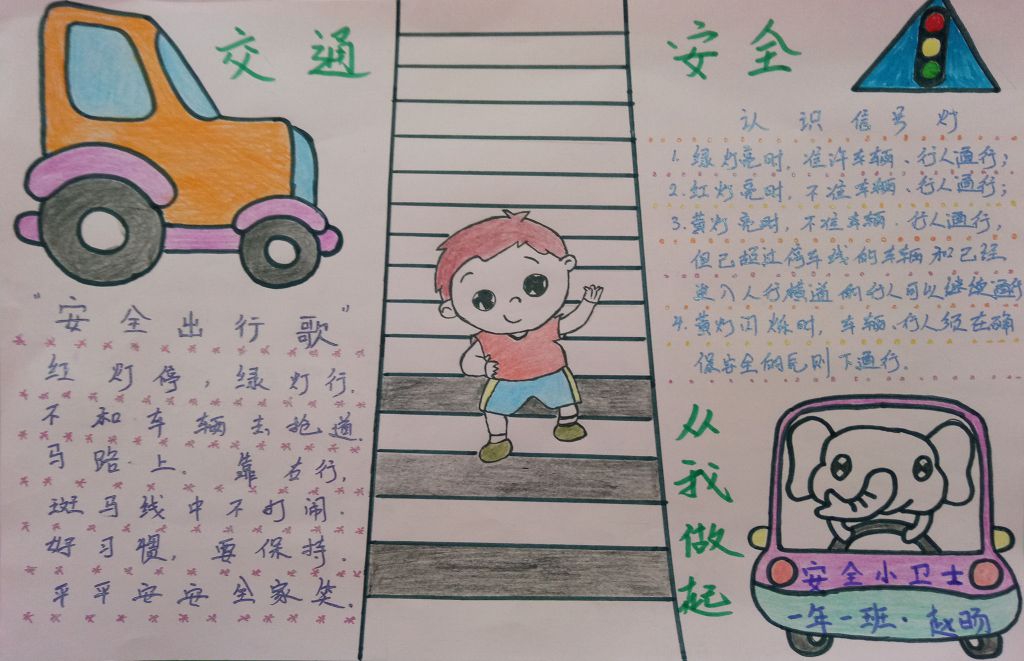 交通安全
"安全出行歌"
红灯停，绿灯行.
不和车辆去抢道.
马路上.靠右行.
斑马线中不打闹.
好习惯，要保持.
平平安安全家笑.
认识信号灯
1.绿灯亮时，准许车辆、行人通行；
2.红灯亮时，不准车辆、行人通行；
3.黄灯亮时，不准车辆、行人通行，
但已超过停车线的车辆和已经
进入人行横道的行人可以继续通行
4.黄灯闪烁时，车辆、行人须在确
保安全的原则下通行.
从我做起
安全小卫士
一年一班.赵旸